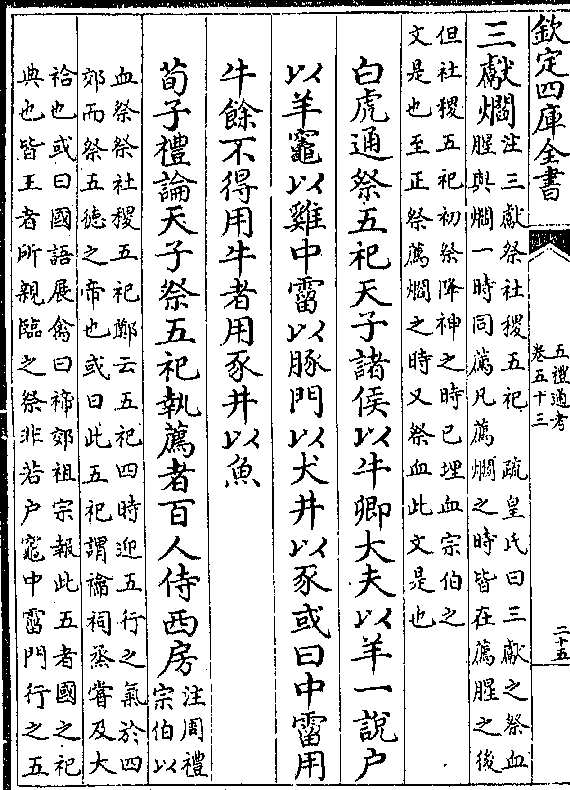 欽定四庫全書
五禮通考
卷五十三
二十五
三獻爓注三獻祭社稷五祀　疏皇氏曰三獻之祭血
腥與爓一時同薦凡薦爓之時皆在薦腥之後
但社稷五祀初祭降神之時已埋血宗伯之
文是也至正祭薦爓之時又祭血此文是也
白虎通祭五祀天子諸侯以牛卿大夫以羊一說戶
以羊竈以雞中霤以豚門以犬井以豕或曰中霤用
牛餘不得用牛者用豕井以魚
荀子禮論天子祭五祀執薦者百人侍西房注周禮
宗伯以
血祭祭社稷五祀鄭云五祀四時迎五行之氣於四
郊而祭五德之帝也或曰此五祀謂禴祠烝嘗及大
祫也或曰國語展禽曰禘郊祖宗報此五者國之祀
典也皆王者所親臨之祭非若戶竈中霤門行之五